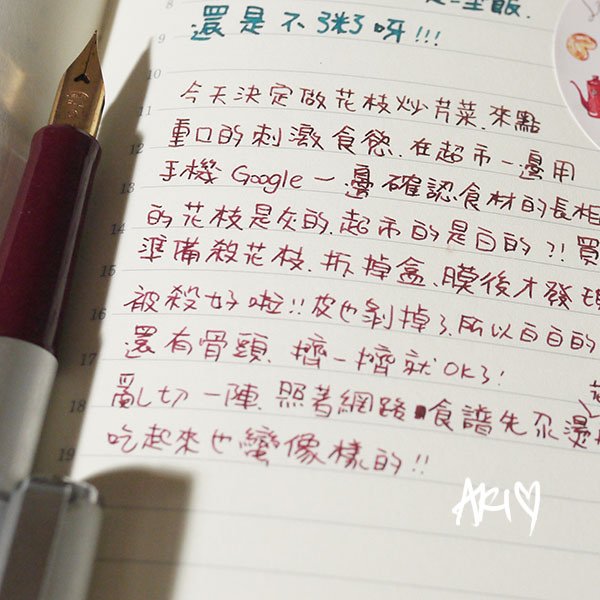 8
飯.
還是不粥呀!!!
9
10
今天決定做花枝炒芹菜.來點
11
重口的刺激食慾.在超市一邊用
12
手機Google一邊確認食材的長相
13
的花枝是灰的.超市的是白的?!買
14
準備殺花枝.拆掉盒、膜後才發現
15
被殺好啦!!皮也剝掉了.所以白白的
16
還有骨頭.擠一擠就OK了!
17
亂切一陣.照著網路食譜先汆燙
18
吃起來也蠻像樣的!!
19
AKI♡